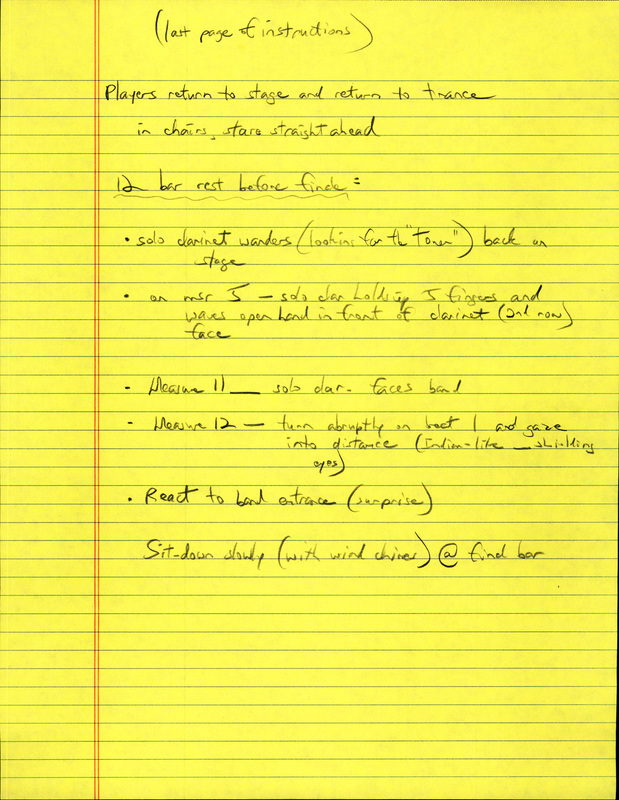 (last page of instructions)
Players return to stage and return to trance
in chairs, stare straight ahead
12 bar rest before finale:
• solo clarinet wanders (looking for the "Tower") back on
stage
• on msr 5 — solo clar holds up 5 fingers and
waves open hand in front of clarinet (2nd row)
face
- Measure 11 — solo clar. faces band
- Measure 12 — turn abruptly on beat 1 and gaze
into distance (Indian-like — shielding
eyes)
• React to band entrance (surprise)
Sit-down slowly (with wind chimes) @ final bar